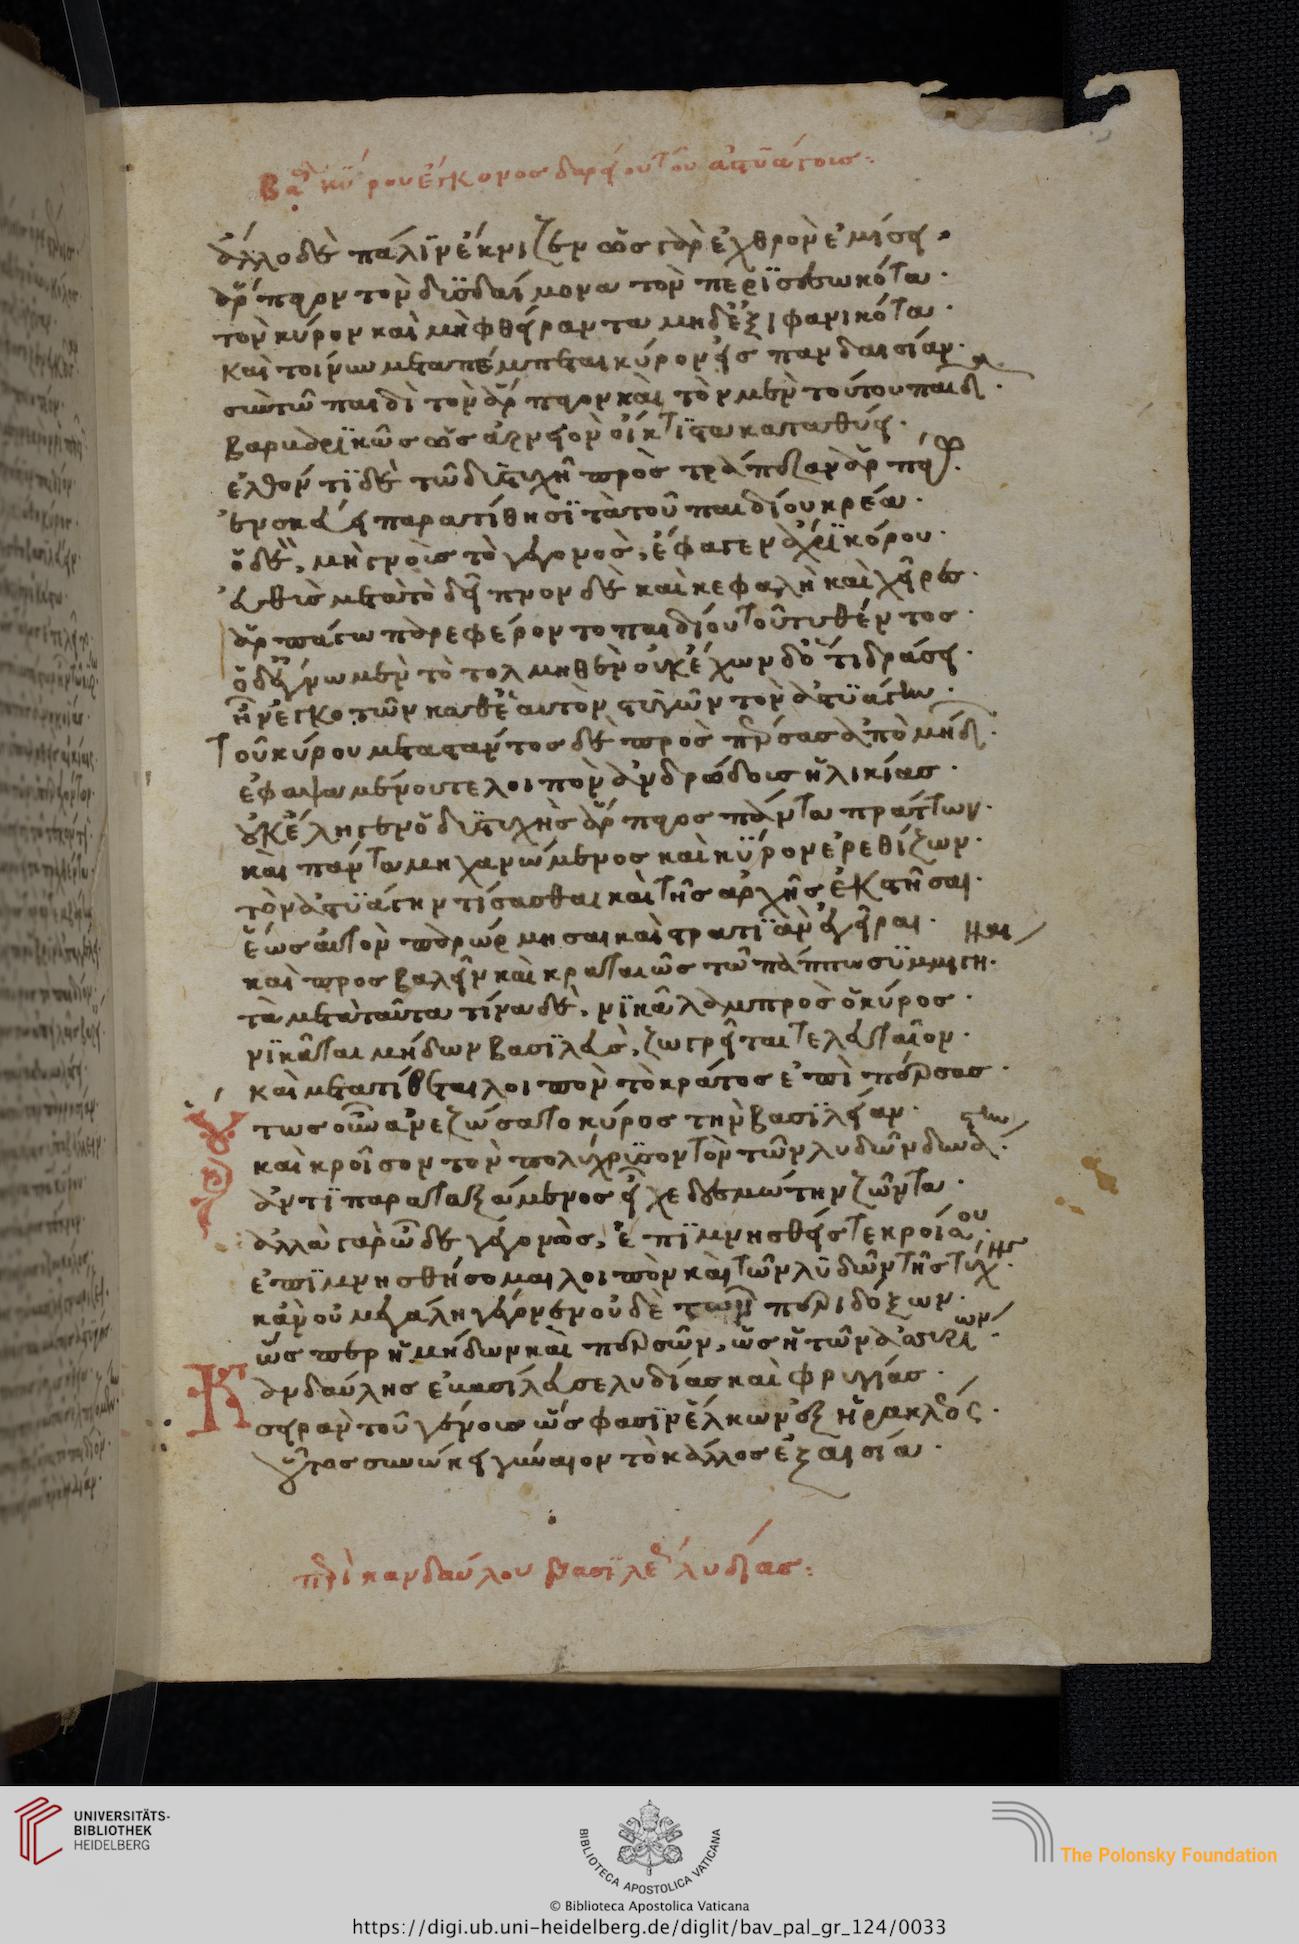 Βασ κύρου ἔκγονος δαρείου τοῦ ἀστυάγους:
ἄλλο δὲ πάλιν ἔκνιζεν ὡς γὰρ ἐχθρὸν ἐμίσει.
ἅρπαγον τὸν δισδαίμονα τὸν περισεσωκότα.
τὸν κύρον καὶ μὴ φθείραντα μηδὲ ἐξιφανικότα.
καὶ τοίνυν μεταπέμπεται κύρον εἰς πανδαισίαν.
σὺν τῶ παιδὶ τὸν ἅρπαγον καὶ τὸν μὲν τούτου παιδα.
βαρυδρικῶς ὡς ἀρνειὸν οἴκτιστα καταθύει.
ἐλθόντι δὲ τῶ δυστυχῆ πρὸς τράπεζαν ἅρπαγ.
ἐν σκέει παρατίθησι τὰ τοῦ παιδίου κρέα.
ὁ δὲ, μὴ γνοὺς τὸ γεγονὸς, ἔφαγεν ἄχρι κόρου.
εὐθὺς μετὰ τὸ δεῖπνον δὲ καὶ κεφαλὴ καὶ χεῖρες.
ἁρπάγω παρεφέροντο παιδίου τοῦ τυθέντος.
ὁ δὲ γνω μὲν τὸ τολμηθὲν οὐκ ἔχων δ' ὅ τι δράσει.
ἦν ἔγκοτῶν καθ' ἑαυτὸν στυγῶν τὸν ἀστυάγην.
τοῦ κύρου μεταστάντος δὲ πρὸς πέρσας ἀπὸ μήδων.
ἐφαψαμένου τε λοιπὸν ἀνδρώδους ἡλικίας.
οὐκ ἔληγεν ὁ δυστυχὴς ἅρπαγος πάντα πράττων.
καὶ πάντα μηχανώμενος καὶ κῦρον ἐρεθίζων.
τὸν ἀστυάγην τίσασθαι καὶ τῆς ἀρχῆς ἐκστῆσαι.
ἕως αὐτὸν παρώρμησαι καὶ στρατιὰν ἀγεῖραι.
καὶ προσβαλεῖν καὶ κραταιῶς τῶ πάππω συμμιγῆναι.
τὰ μετὰ ταῦτα τίνα δὲ, νικᾶ λαμπρὸς ὁ κύρος.
νικᾶται μήδων βασιλεὺς, ζωγρεῖται τελευταῖον.
καὶ μετατίθεται λοιπὸν τὸ κράτος ἐπὶ πέρσας.
Οὕτως οὖν ἀνεζώσατο κύρος τὴν βασιλείαν.
καὶ κροῖσον τὸν πολύχρυσον τὸν τῶν λυδῶν δυνάστην.
ἀντιπαραταξάμενος εἶχε δεσμώτην ζῶντα.
ἀλλὰ γὰρ ὧδε γεγονὼς, ἐπιμνησθεὶς τε κροίσου.
ἐπιμνησθήσομαι λοιπὸν καὶ τῶν λυδῶν τῆς τύχης.
κἂν οὐ μεγάλη γέγονεν οὐδὲ τῶν περιδόξων.
ὥσπερ ἡ μήδων καὶ περσῶν, ὡς ἡ τῶν ἀσσυρίων.
Κανδαύλης ἐβασίλευσε λυδίας καὶ φρυγίας.
σειρὰν τοῦ γένους ὥς φασιν ἕλκων ἐξ ἡρακλέος.
οὗτος συνώκει γύναιον τὸ κάλλος ἐξαισία.
περὶ κανδαύλου βασιλέως λυδίας:
UNIVERSITÄTS-
BIBLIOTHEK
HEIDELBERG
BIBLIOTECA APOSTOLICA VATICANA
The Polonsky Foundation
© Biblioteca Apostolica Vaticana
https://digi.ub.uni-heidelberg.de/diglit/bav_pal_gr_124/0033